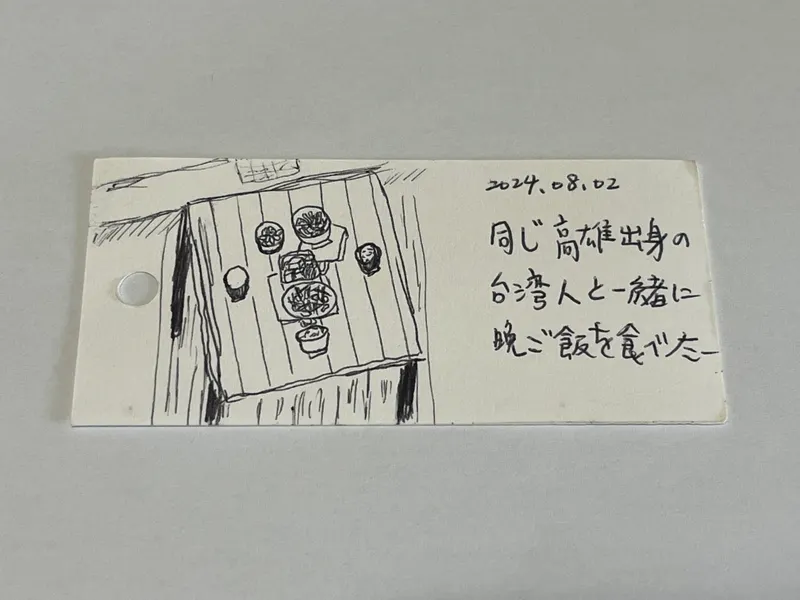 2024.08.02
同じ高雄出身の
台湾人と一緒に
晩ご飯を食べたー